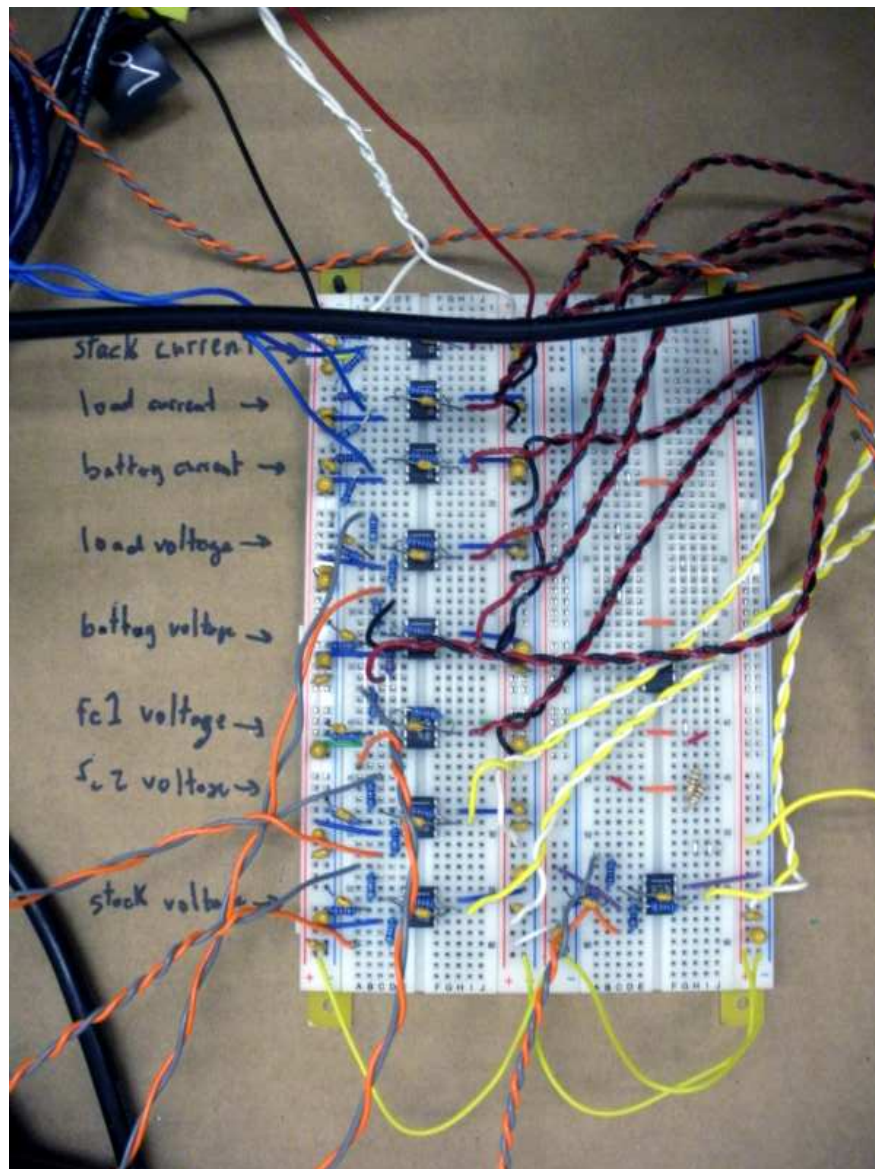 stack current →
load current →
battery current →
load voltage →
battery voltage →
fc1 voltage →
fc2 voltage →
stack voltage →
A B C D F G H I J